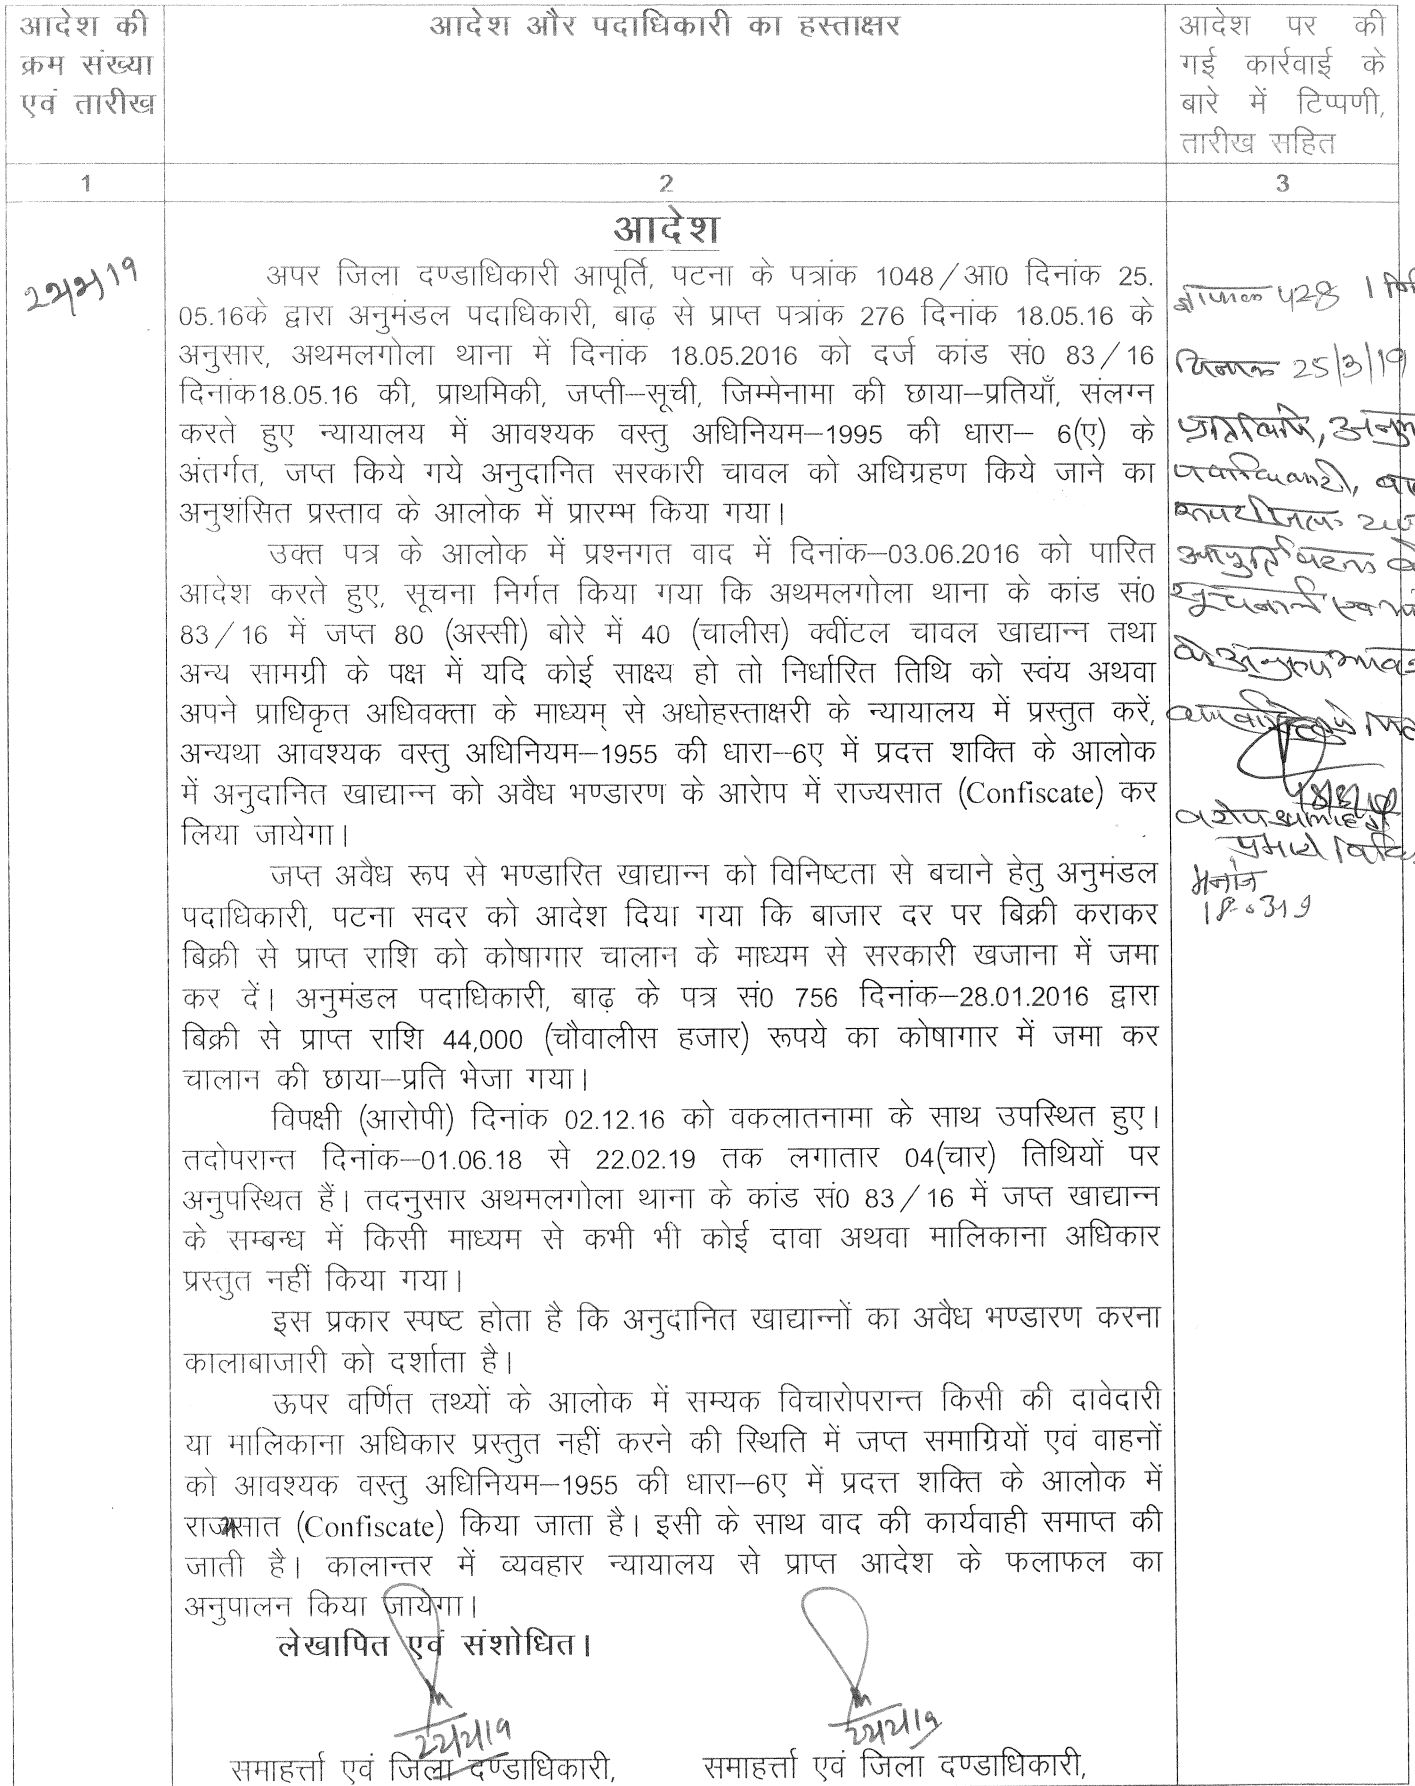 आदेश की
क्रम संख्या
एवं तारीख
आदेश और पदाधिकारी का हस्ताक्षर
आदेश पर की
गई कार्रवाई के
बारे में टिप्पणी,
तारीख सहित
1
2
3
22/2/19
आदेश
अपर जिला दण्डाधिकारी आपूर्ति, पटना के पत्रांक 1048/आ0 दिनांक 25.
05.16के द्वारा अनुमंडल पदाधिकारी, बाढ़ से प्राप्त पत्रांक 276 दिनांक 18.05.16 के
अनुसार, अथमलगोला थाना में दिनांक 18.05.2016 को दर्ज कांड सं0 83/16
दिनांक18.05.16 की, प्राथमिकी, जप्ती–सूची, जिम्मेनामा की छाया–प्रतियाँ, संलग्न
करते हुए न्यायालय में आवश्यक वस्तु अधिनियम–1995 की धारा– 6(ए) के
अंतर्गत, जप्त किये गये अनुदानित सरकारी चावल को अधिग्रहण किये जाने का
अनुशंसित प्रस्ताव के आलोक में प्रारम्भ किया गया।
उक्त पत्र के आलोक में प्रश्नगत वाद में दिनांक–03.06.2016 को पारित
आदेश करते हुए, सूचना निर्गत किया गया कि अथमलगोला थाना के कांड सं0
83/16 में जप्त 80 (अस्सी) बोरे में 40 (चालीस) क्वींटल चावल खाद्यान्न तथा
अन्य सामग्री के पक्ष में यदि कोई साक्ष्य हो तो निर्धारित तिथि को स्वंय अथवा
अपने प्राधिकृत अधिवक्ता के माध्यम् से अधोहस्ताक्षरी के न्यायालय में प्रस्तुत करें,
अन्यथा आवश्यक वस्तु अधिनियम–1955 की धारा–6ए में प्रदत्त शक्ति के आलोक
में अनुदानित खाद्यान्न को अवैध भण्डारण के आरोप में राज्यसात (Confiscate) कर
लिया जायेगा।
जप्त अवैध रूप से भण्डारित खाद्यान्न को विनिष्टता से बचाने हेतु अनुमंडल
पदाधिकारी, पटना सदर को आदेश दिया गया कि बाजार दर पर बिक्री कराकर
बिक्री से प्राप्त राशि को कोषागार चालान के माध्यम से सरकारी खजाना में जमा
कर दें। अनुमंडल पदाधिकारी, बाढ़ के पत्र सं0 756 दिनांक–28.01.2016 द्वारा
बिक्री से प्राप्त राशि 44,000 (चौवालीस हजार) रूपये का कोषागार में जमा कर
चालान की छाया–प्रति भेजा गया।
विपक्षी (आरोपी) दिनांक 02.12.16 को वकलातनामा के साथ उपस्थित हुए।
तदोपरान्त दिनांक–01.06.18 से 22.02.19 तक लगातार 04(चार) तिथियों पर
अनुपस्थित हैं। तदनुसार अथमलगोला थाना के कांड सं0 83/16 में जप्त खाद्यान्न
के सम्बन्ध में किसी माध्यम से कभी भी कोई दावा अथवा मालिकाना अधिकार
प्रस्तुत नहीं किया गया।
इस प्रकार स्पष्ट होता है कि अनुदानित खाद्यान्नों का अवैध भण्डारण करना
कालाबाजारी को दर्शाता है।
ऊपर वर्णित तथ्यों के आलोक में सम्यक विचारोपरान्त किसी की दावेदारी
या मालिकाना अधिकार प्रस्तुत नहीं करने की स्थिति में जप्त समाग्रियों एवं वाहनों
को आवश्यक वस्तु अधिनियम–1955 की धारा–6ए में प्रदत्त शक्ति के आलोक में
राजसात (Confiscate) किया जाता है। इसी के साथ वाद की कार्यवाही समाप्त की
जाती है। कालान्तर में व्यवहार न्यायालय से प्राप्त आदेश के फलाफल का
अनुपालन किया जायेगा।
लेखापित एवं संशोधित।
22/2/19
22/2/19
समाहर्त्ता एवं जिला दण्डाधिकारी,
समाहर्त्ता एवं जिला दण्डाधिकारी,
ज्ञापांक 428
दिनांक 25/3/19
प्रतिलिपि,
पदाधिकारी,
आपूर्ति पटना
सूचनार्थ
मनोज